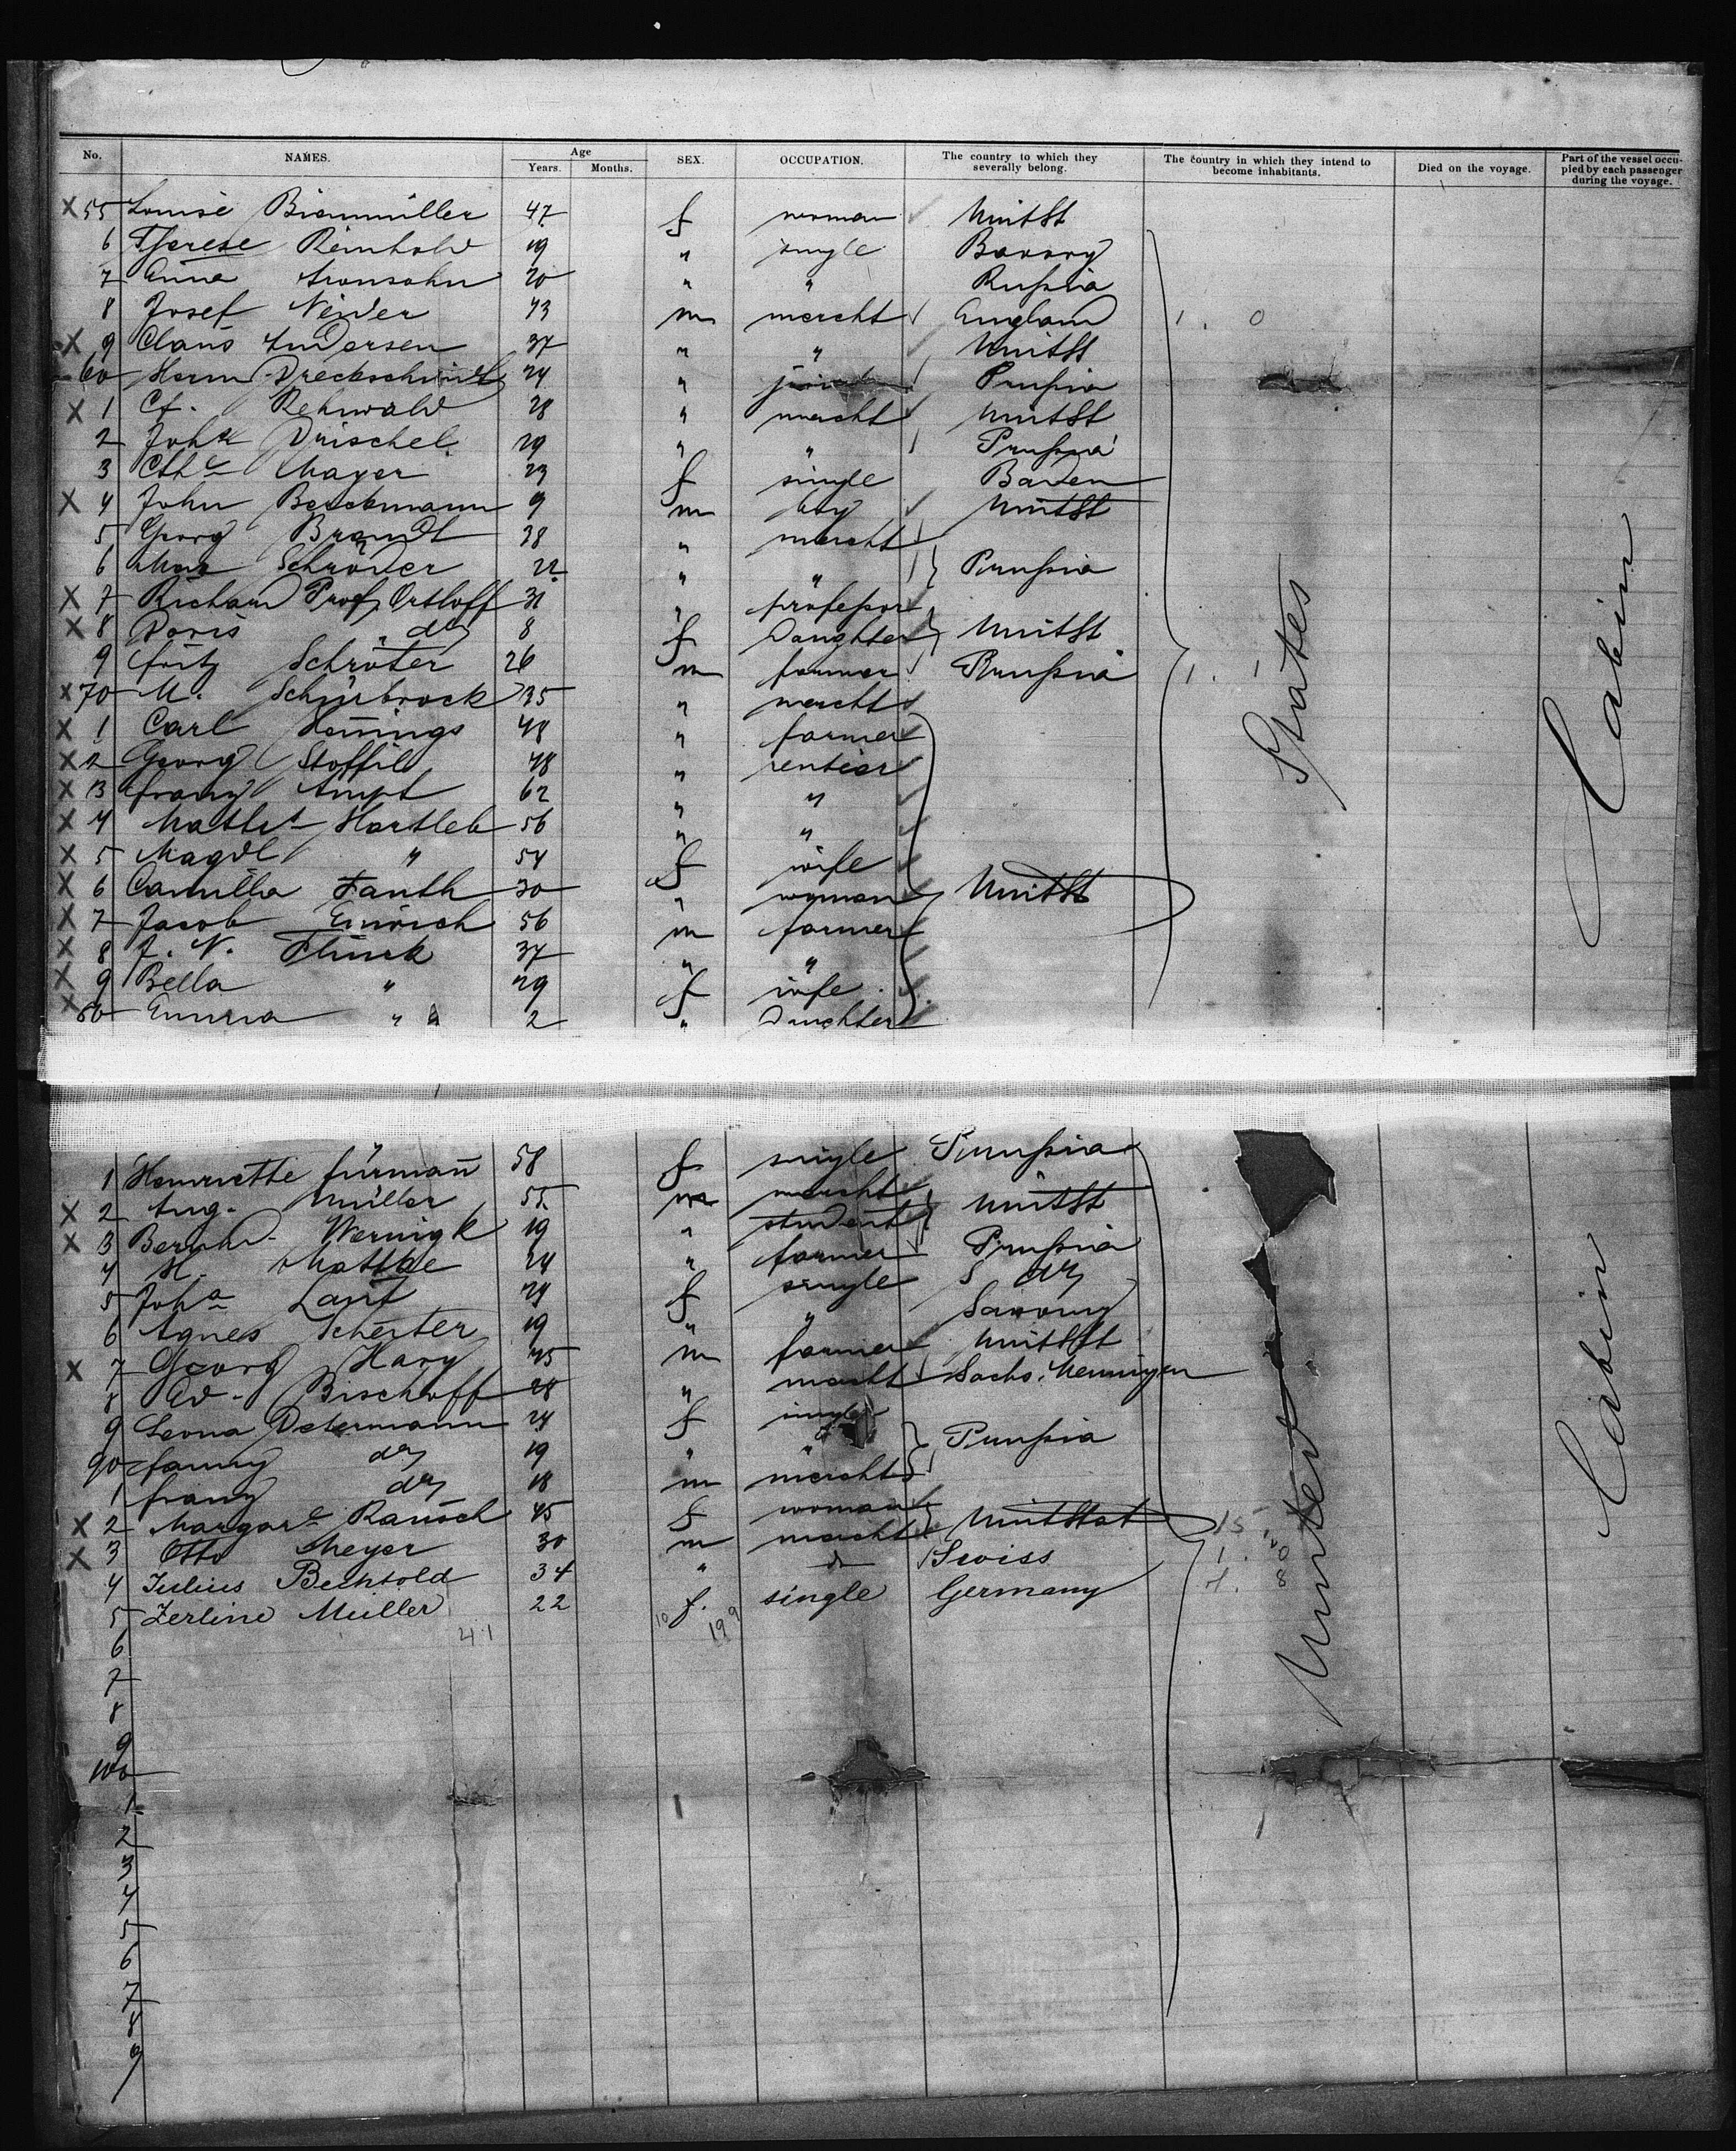 No. NAMES. Age Years. Months. SEX. OCCUPATION. The country to which they severally belong. The country in which they intend to become inhabitants. Died on the voyage. Part of the vessel occupied by each passenger during the voyage.
X 55 Louise 47 f woman UnitSt
6 Therese Reinhold 19 " single Bavary
7 Anna Aronsohn 20 " " Russia
8 Josef Neider m mercht England 1. 0
X 9 Claus Andersen 37 " " UnitSt
60 Herm Dreckschmidt 24 " Prussia
X 1 Rehwald 28 " mercht UnitSt
2 Joha Drischel 29 " " Prussia
3 Cthe Mayer 23 f single Baden
X 4 John Beckmann 9 m boy UnitSt
5 Georg Brandt 38 " mercht
6 Max Schröder 22 " " Prussia
X 7 Richard Prof. Ortloff 31 " professor
X 8 Doris " do 8 f Daughter UnitSt
9 fritz Schröter 26 m farmer Prussia 1. 1
X 70 M. 35 " mercht
X 1 Carl Hennings 48 " farmer
X 2 Georg Stoffil 48 " rentier
X 3 franz Ampt 62 " "
X 4 Hartleb 56 " "
X 5 Magdl " 54 f wife
X 6 Camilla Fauth 30 " woman UnitSt
X 7 Jacob 56 m farmer
X 8 J. N. 37 " "
X 9 Bella " 29 f wife
X 80 Emma " 2 " Daughter
States
Cabin
1 Henriette fürmann 58 f single Prussia
X 2 Aug. Müller 55 m mercht UnitSt
X 3 Bernhd. Wernigk 19 " student
4 H. Matthe 24 " farmer Prussia
5 Joha Lant 29 f single do
6 Agnes Schester 19 " "
X 7 Georg Hary 45 m farmer UnitSt
8 Ed. Bischoff 28 " mercht Sachs. Meiningen
9 Leona Determann 24 f single
90 fanny do 19 " " Prussia
1 franz do 18 m mercht
X 2 Margare Rausch 45 f woman UnitStat 15
X 3 Otto Meyer 30 m mercht 1. 0
4 Julius Bechtold 34 " do Swiss 8
5 Zerline Müller 22 f. single Germany
41 10 19 9
6
7
8
9
100
1
2
3
4
5
6
7
8
9
United
Cabin